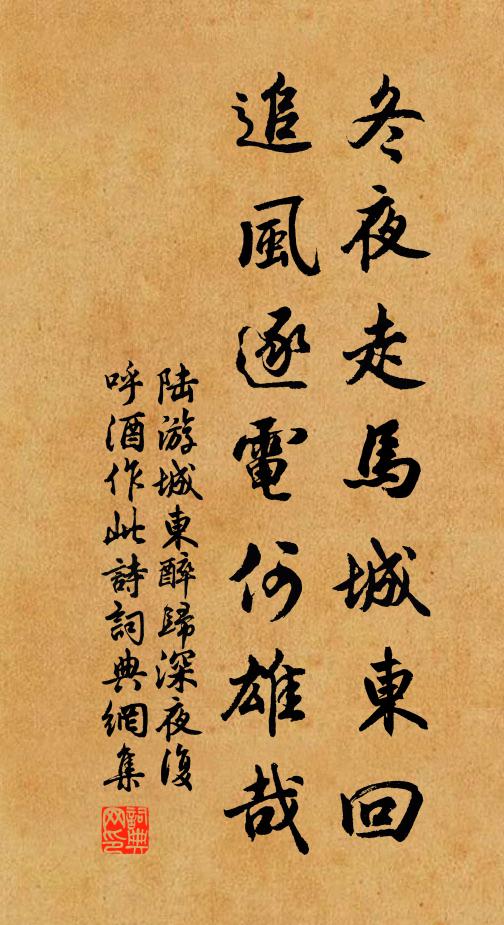 冬夜走馬城東回
追風逐電何雄哉
陆游城東醉歸深夜復
呼酒作此詩詞典網集
詞典网印